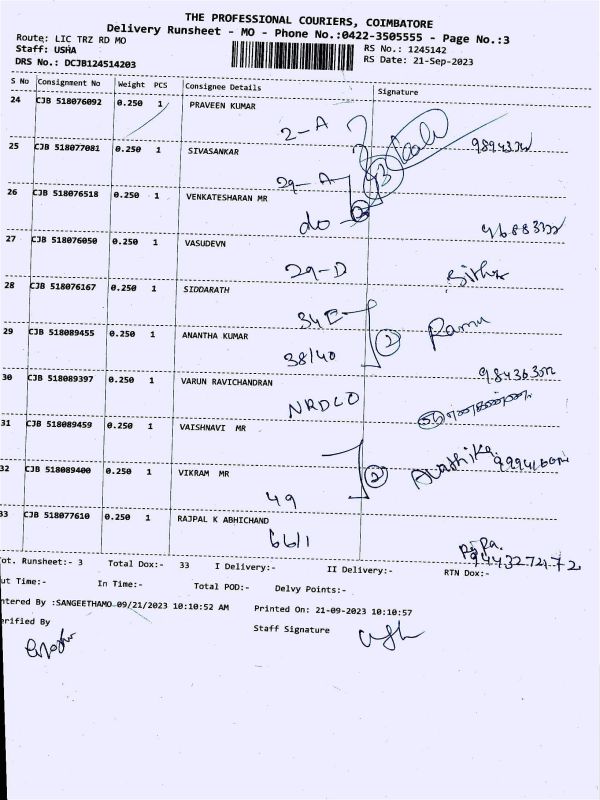 THE PROFESSIONAL COURIERS, COIMBATORE
Delivery Runsheet - MO - Phone No.:0422-3505555 - Page No.:3
Route: LIC TRZ RD MO
RS No.: 1245142
Staff: USHA
RS Date: 21-Sep-2023
DRS No.: DCJB124514203
S No Consignment No Weight PCS Consignee Details Signature
24 CJB 518076092 0.250 1 PRAVEEN KUMAR
2-A
25 CJB 518077081 0.250 1 SIVASANKAR
29-A
26 CJB 518076518 0.250 1 VENKATESHARAN MR
do
27 CJB 518076050 0.250 1 VASUDEVN
29-D
28 CJB 518076167 0.250 1 SIDDARATH
34E
29 CJB 518089455 0.250 1 ANANTHA KUMAR
2 Ramu
38/40
30 CJB 518089397 0.250 1 VARUN RAVICHANDRAN
NRDCO
31 CJB 518089459 0.250 1 VAISHNAVI MR
32 CJB 518089400 0.250 1 VIKRAM MR
2 Avashika
49
33 CJB 518077610 0.250 1 RAJPAL K ABHICHAND
66/1
ot. Runsheet:- 3 Total Dox:- 33 I Delivery:- II Delivery:- RTN Dox:-
9443272172
ut Time:- In Time:- Total POD:- Delvy Points:-
ntered By :SANGEETHAMO 09/21/2023 10:10:52 AM Printed On: 21-09-2023 10:10:57
erified By
Staff Signature